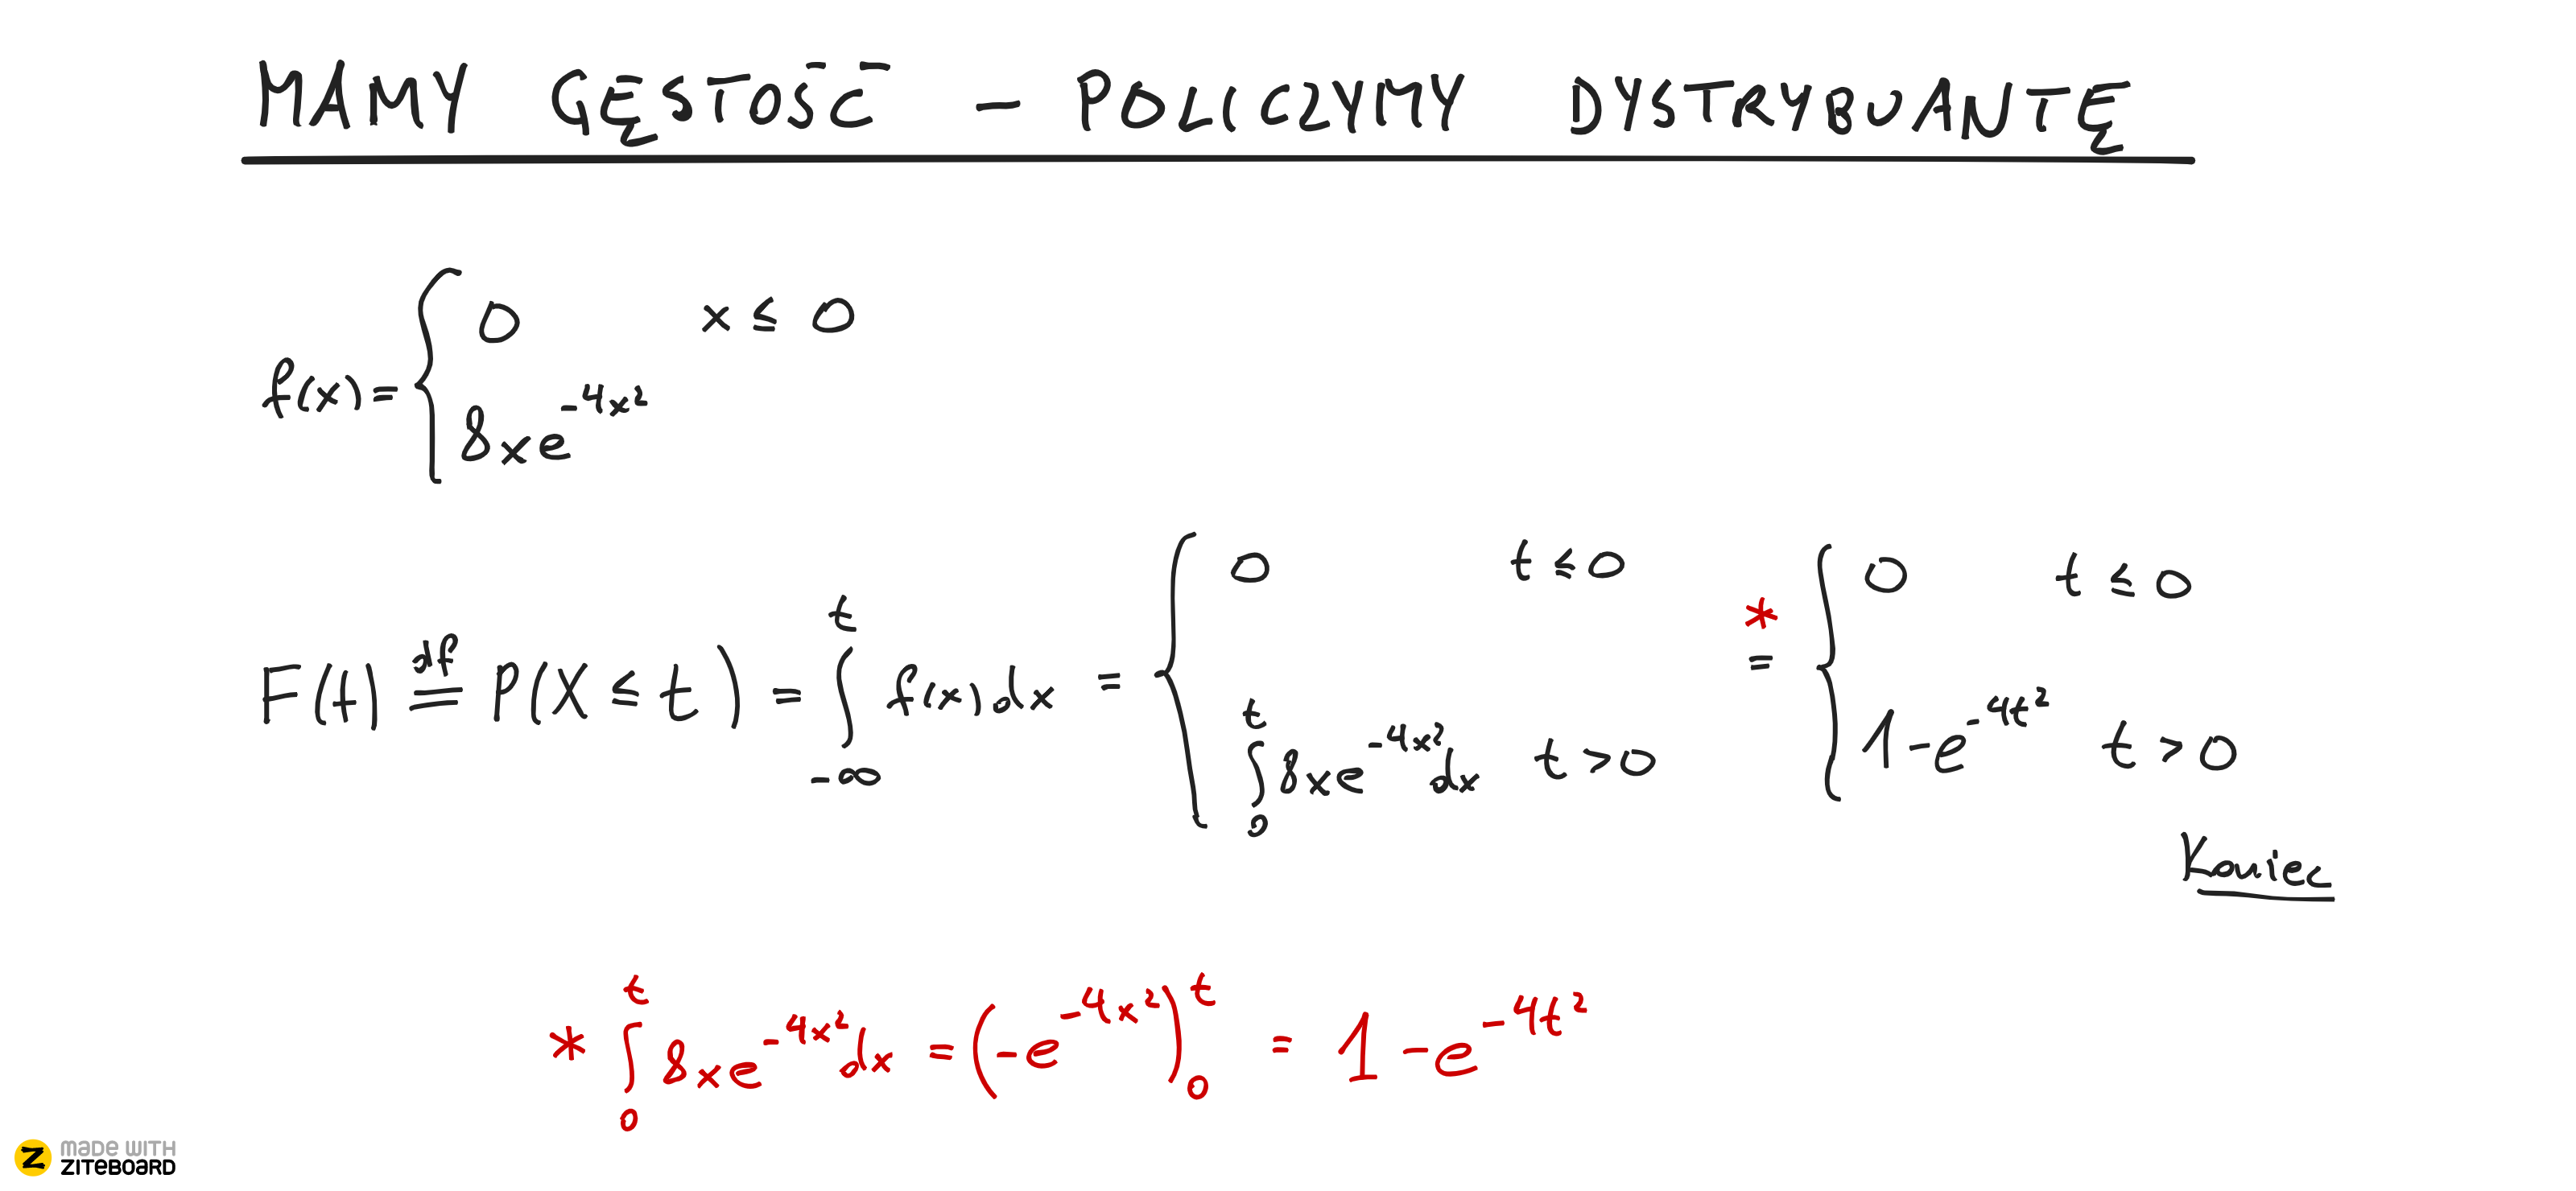 MAMY GĘSTOŚĆ - POLICZYMY DYSTRYBUANTĘ
f(x) = { 0 x ≤ 0
8xe^{-4x²}
F(t) \overset{df}{=} P(X ≤ t) = ∫_{-∞}^{t} f(x)dx = { 0 t ≤ 0 ; ∫_{0}^{t} 8xe^{-4x²}dx t > 0 \overset{*}{=} { 0 t ≤ 0 ; 1 - e^{-4t²} t > 0
Koniec
* ∫_{0}^{t} 8xe^{-4x²}dx = (-e^{-4x²})_{0}^{t} = 1 - e^{-4t²}
MADE WITH
ZITEBOARD